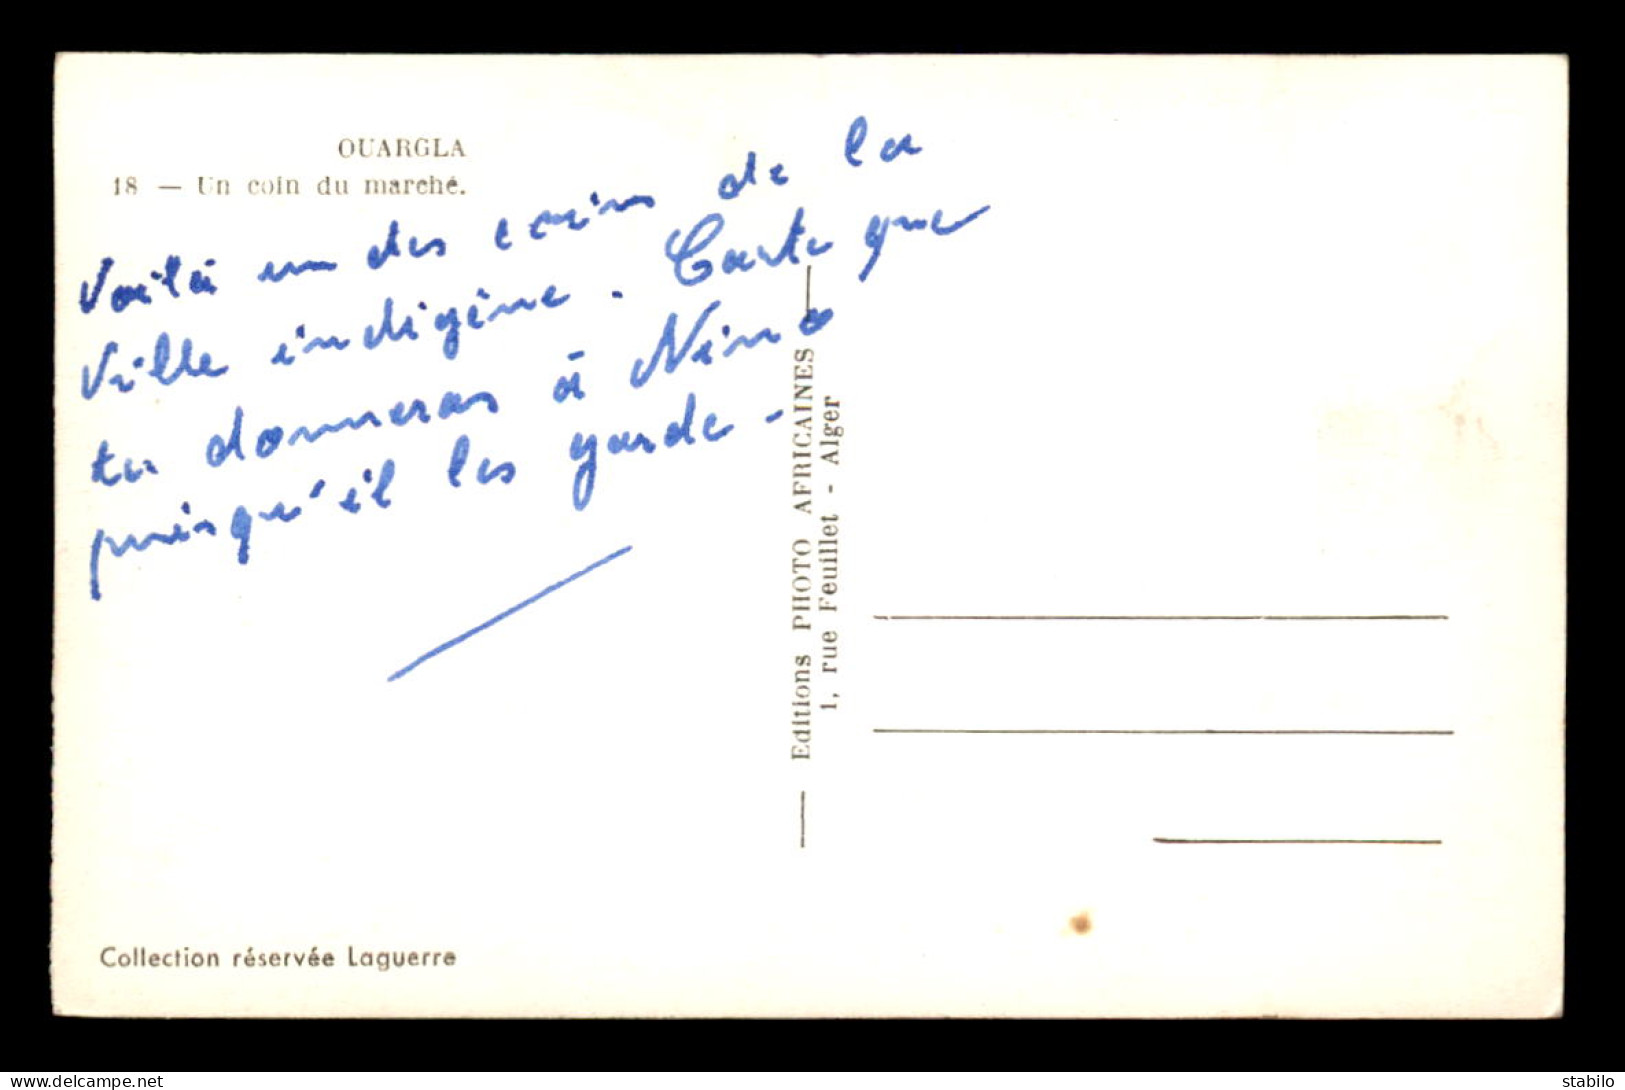 OUARGLA
18 — Un coin du marché.
Voilà un des coins de la
Ville indigène. Carte que
tu donneras à Nino
puisqu'il les garde -
Editions PHOTO AFRICAINES
1, rue Feuillet - Alger
Collection réservée Laguerre
delcampe.net
stabilo